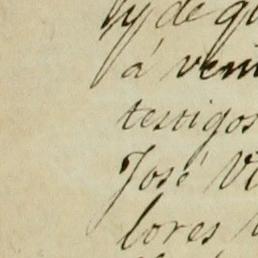 y de qu
á ven
testigos
José Vi
lores